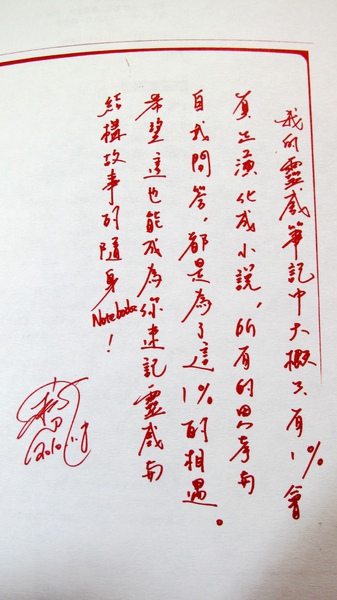 我的靈感筆記中大概只有1%會
真正演化成小說，所有的思考與
自我問答，都是為了這1%的相遇。
希望這也能成為你速記靈感與
結構故事的隨身Notebook！
2010